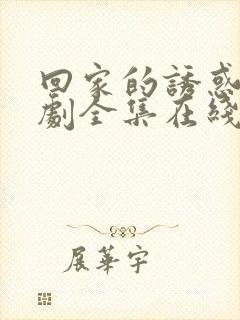 回家的誘惑
劇全集在綫
展華宇